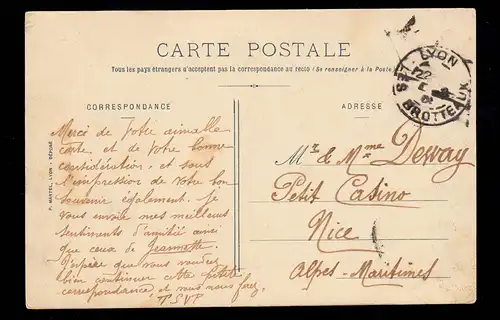 CARTE POSTALE
Tous les pays étrangers n'acceptent pas la correspondance au recto (Se renseigner à la Poste)
LYON
LES BROTTEAUX
22
CORRESPONDANCE
ADRESSE
P. MARTEL, LYON - DÉPOSÉ
Merci de votre aimable
carte et de votre bonne
considération, et sous
l'impression de votre bon
souvenir également. Je
vous envoie mes meilleurs
sentiments d'amitié ainsi
que ceux de Jeannette.
J'espère que vous voudrez
bien continuer cette petite
correspondance et vous nous ferez
T.S.V.P
Mr & Mme Deway
Petit Casino
Nice
Alpes-Maritimes